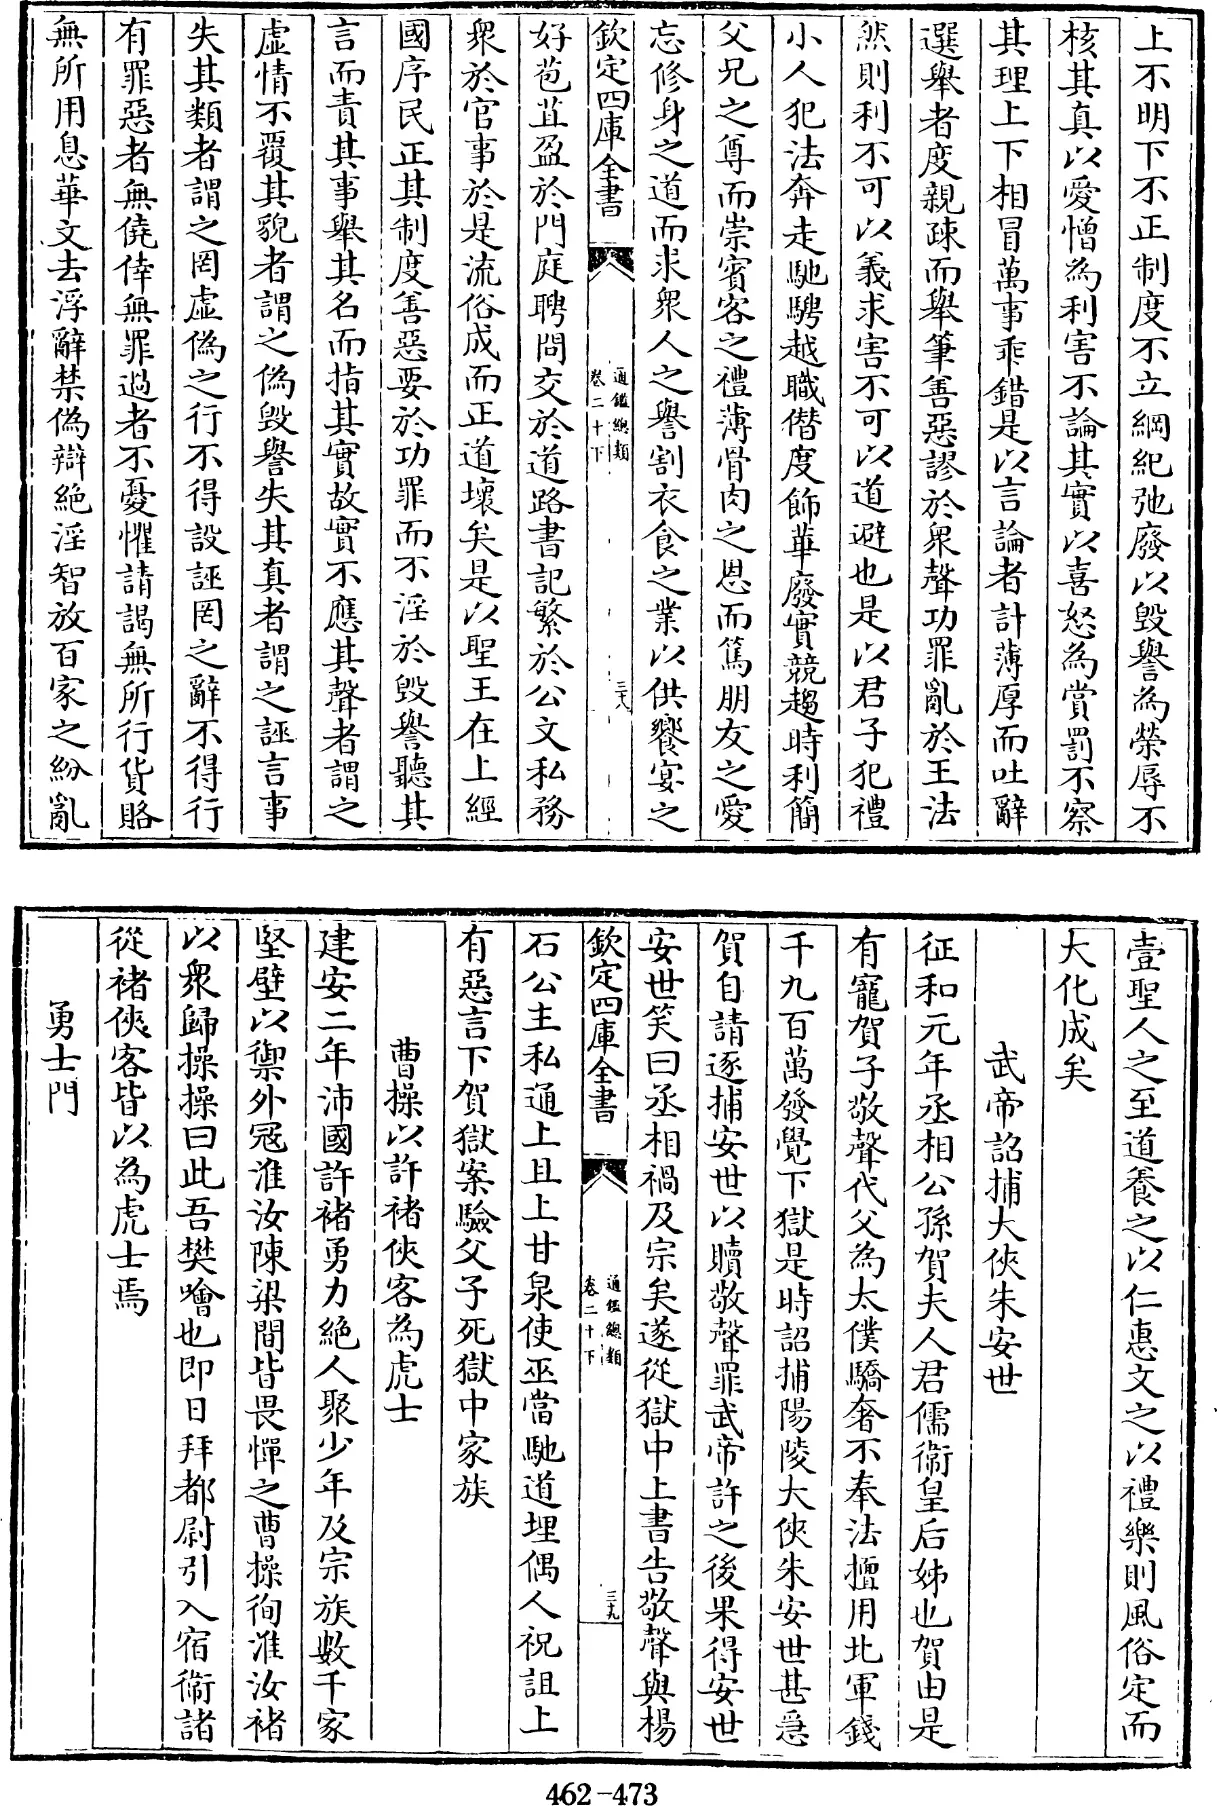 上不明下不正制度不立綱紀弛廢以毀譽為榮辱不
核其真以愛憎為利害不論其實以喜怒為賞罰不察
其理上下相冒萬事乖錯是以言論者計薄厚而吐辭
選舉者度親疎而舉筆善惡謬於衆聲功罪亂於王法
然則利不可以義求害不可以道避也是以君子犯禮
小人犯法奔走馳騁越職僭度飾華廢實競趨時利簡
父兄之尊而崇賓客之禮薄骨肉之恩而篤朋友之愛
忘修身之道而求衆人之譽割衣食之業以供饗宴之
欽定四庫全書
通鑑總類
卷二十下
三八
好苞苴盈於門庭聘問交於道路書記繁於公文私務
衆於官事於是流俗成而正道壞矣是以聖王在上經
國序民正其制度善惡要於功罪而不淫於毀譽聽其
言而責其事舉其名而指其實故實不應其聲者謂之
虛情不覆其貌者謂之偽毀譽失其真者謂之誣言事
失其類者謂之罔虛偽之行不得設誣罔之辭不得行
有罪惡者無僥倖無罪過者不憂懼請謁無所行貨賂
無所用息華文去浮辭禁偽辯絕淫智放百家之紛亂
壹聖人之至道養之以仁惠文之以禮樂則風俗定而
大化成矣
武帝詔捕大俠朱安世
征和元年丞相公孫賀夫人君儒衞皇后姊也賀由是
有寵賀子敬聲代父為太僕驕奢不奉法擅用北軍錢
千九百萬發覺下獄是時詔捕陽陵大俠朱安世甚急
賀自請逐捕安世以贖敬聲罪武帝許之後果得安世
安世笑曰丞相禍及宗矣遂從獄中上書告敬聲與楊
欽定四庫全書
通鑑總類
卷二十下
三九
石公主私通上且上甘泉使巫當馳道埋偶人祝詛上
有惡言下賀獄案驗父子死獄中家族
曹操以許褚俠客為虎士
建安二年沛國許褚勇力絕人聚少年及宗族數千家
堅壁以禦外冦淮汝陳梁間皆畏憚之曹操徇淮汝褚
以衆歸操操曰此吾樊噲也即日拜都尉引入宿衞諸
從褚俠客皆以為虎士焉
勇士門
462-473